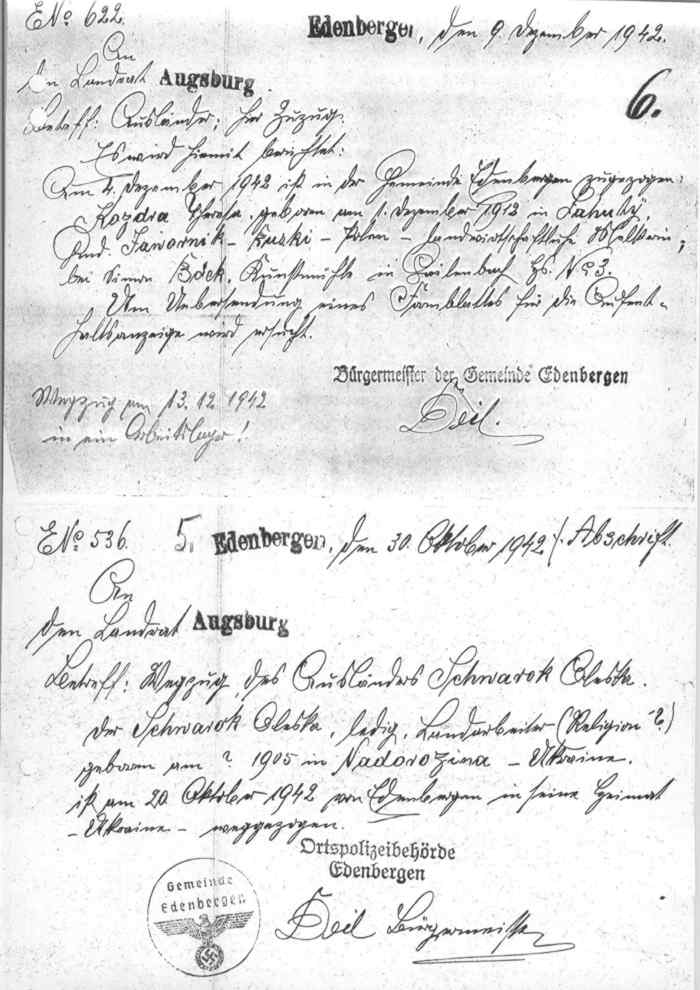 ENº 622.
Edenbergen, den 9. Dezember 1942.
An
den Landrat Augsburg
6.
Betreff: Ausländer; hier Zuzug.
Es wird hiemit berichtet:
Am 4. Dezember 1942 ist in der Gemeinde Edenbergen zugezogen:
Kozdra Theresa, geboren am 1. Dezember 1912 in
Jawornik - Ruski - Polen - landwirtschaftliche
bei Simon Böck, Kunstmühle in Gailenbach Hs. Nº 3.
Um Uebersendung eines Formblattes für die Aufent-
haltsanzeige wird ersucht.
Bürgermeister der Gemeinde Edenbergen
Wegzug am 13.12.1942
in ein Arbeitslager!
ENº 536. 5. Edenbergen, den 30. Oktober 1942. / Abschrift
An
den Landrat Augsburg
Betreff: Wegzug des Ausländers Schwarok Oleska.
Der Schwarok Oleska, ledig, Landarbeiter (Religion ?)
geboren am ? 1905 in Nadorozina - Ukraine.
ist am 20. Oktober 1942 von Edenbergen in seine Heimat
- Ukraine - weggezogen.
Ortspolizeibehörde
Edenbergen
Gemeinde
Edenbergen
Bürgermeister